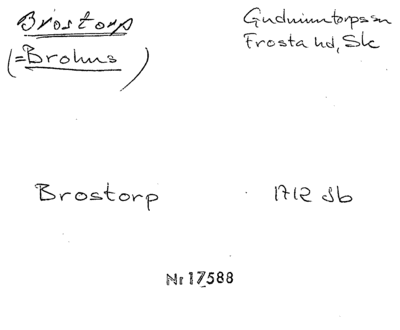 Brostorp
Gudmuntorps sn
(= Brohus)
Frosta hd, Sk
Brostorp
1712 Jb
Nr 17588